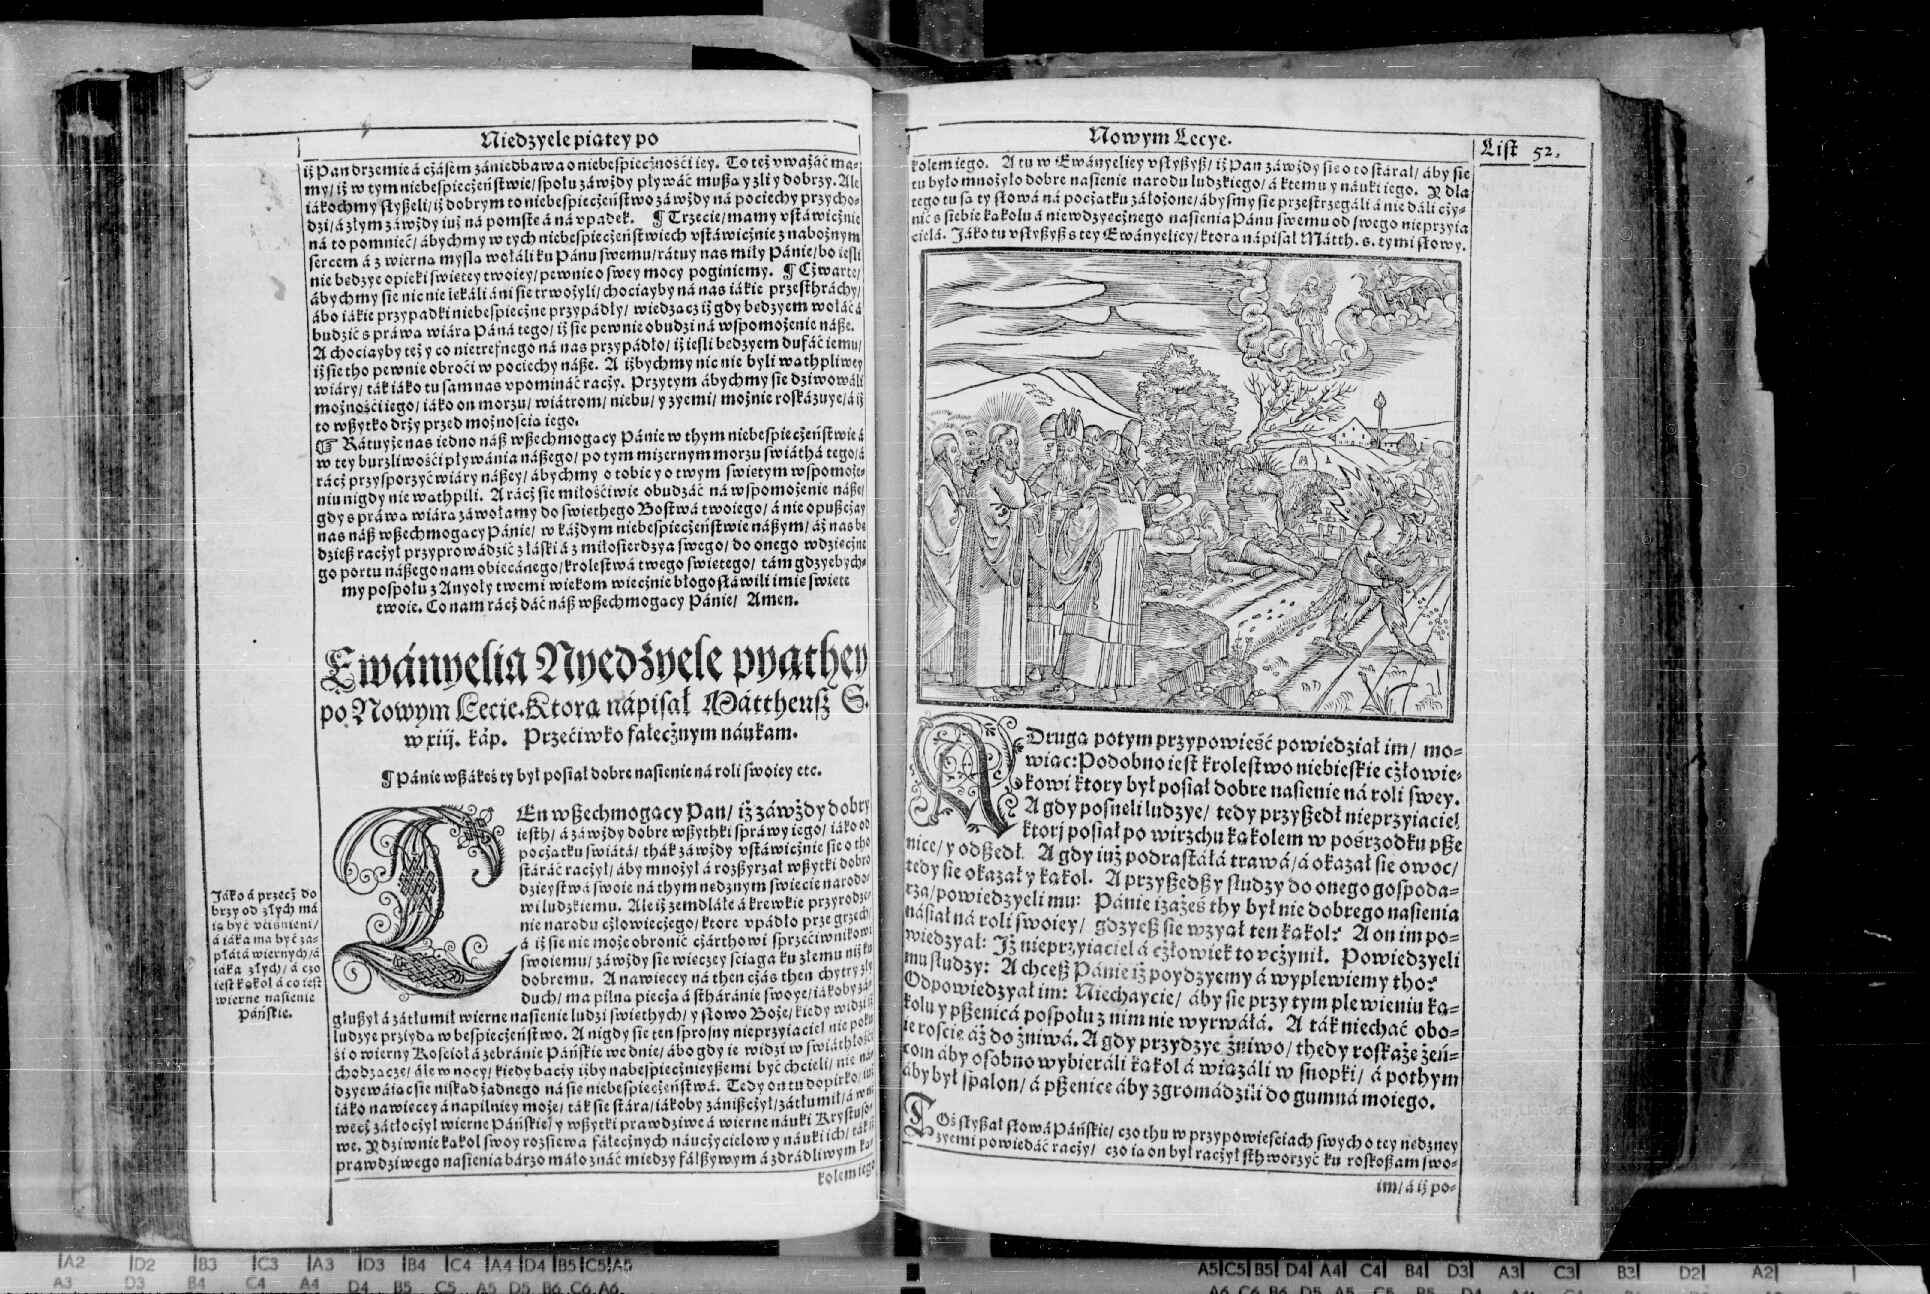 Niedzyele piątey po
iż Pan drzemie á cżásem zániedbawa o niebespiecżnośći iey. To też vważáć ma-
my/ iż w tym niebespiecżeństwie/ społu záwżdy pływáć mußą y zli y dobrzy. Ale
iákochmy słyßeli/ iż dobrym to niebespiecżeństwo záwżdy ná pociechy przycho-
dzi/ á złym záwżdy iuż ná pomstę á ná vpadek. ¶ Trzecie/ mamy vstáwicżnie
ná to pomnieć/ ábychmy w tych niebespiecżeństwiech vstáwicżnie z nabożnym
sercem á z wierną myslą wołáli ku Pánu swemu/ rátuy nas miły Pánie/ bo iesli
nie będzye opieki swiętey twoiey/ pewnie o swey mocy poginiemy. ¶ Cżwarte/
ábychmy sie nic nie lękáli áni sie trwożyli/ chociayby ná nas iákie przesthráchy/
ábo iákie przypadki niebespiecżne przypádły/ wiedząc iż gdy będzyem wołáć á
budzić s práwą wiárą Páná tego/ iż sie pewnie obudzi ná wspomożenie náße.
A chociayby też y co nietrefnego ná nas przypádło/ iż iesli będzyem dufáć iemu/
iż sie tho pewnie obroći w pociechy náße. A iżbychmy nic nie byli wathpliwey
wiáry/ ták iáko tu sam nas vpomináć racży. Przytym ábychmy sie dziwowáli
możnośći iego/ iáko on morzu/ wiátrom/ niebu/ y zyemi/ możnie roskázuye/ á iż
to wßytko drży przed możnością iego.
☞ Rátuyże nas iedno náß wßechmogący Pánie w thym niebespiecżeństwie á
w tey burzliwośći pływánia náßego/ po tym mizernym morzu swiáthá tego/ á
rácż przysporzyć wiáry náßey/ ábychmy o tobie y o twym swiętym wspomoże-
niu nigdy nie wathpili. A rácż sie miłośćiwie obudzáć ná wspomożenie náße/
gdy s práwą wiárą záwołamy do swiethego Bostwá twoiego/ á nie opußcżay
nas náß wßechmogący Pánie/ w káżdym niebespiecżeństwie náßym/ áż nas bę
dzieß racżył przyprowádzić z łáski á z miłosierdzya swego/ do onego wdzięcżne
go portu náßego nam obiecánego/ krolestwá twego swiętego/ tám gdzyebych-
my pospołu z Anyoły twemi wiekom wiecżnie błogosłáwili imię swięte
twoie. Co nam rácż dáć náß wßechmogący Pánie/ Amen.
Ewányelia Nyedzyele pyąthey
po Nowym Lecie. Ktorą nápisał Mattheusz S.
w xiij. káp. Przećiwko fałecżnym náukam.
¶ Pánie wßákeś ty był posiał dobre nasienie ná roli swoiey etc.
TEn wßechmogący Pan/ iż záwżdy dobry
iesth/ á záwżdy dobre wßythki spráwy iego/ iáko od
pocżątku swiátá/ thák záwżdy vstáwicżnie sie o tho
stáráć racżył/ áby mnożył á rozßyrzał wßytki dobro
dzieystwá swoie ná thym nędznym swiecie narodo-
wi ludzkiemu. Ale iż zemdláłe á krewkie przyrodze-
nie narodu cżłowiecżego/ ktore vpádło prze grzech/
á iż sie nie może obronić cżárthowi sprzećiwnikowi
swoiemu/ záwżdy sie więcey ściąga ku złemu niż ku
dobremu. A nawięcey ná then cżás then chytry zły
duch/ ma pilną piecżą á stháránie swoye/ iákoby zá-
głußył á zátłumił wierne nasienie ludzi swiethych/ y słowo Boże/ kiedy widzi iż
ludzye przyidą w bespiecżeństwo. A nigdy sie ten sprosny nieprzyiaciel nie poku
śi o wierny Kościoł á zebránie Páńskie we dnie/ ábo gdy ie widzi w swiáthłośći
chodzące/ ále w nocy/ kiedy bacży iżby nabespiecżnieyßemi być chcieli/ nie ná-
dzyewáiąc sie niskąd żadnego ná się niebespiecżeństwá. Tedy on tu dopirko/ iuż
iáko nawięcey á napilniey może/ ták sie stára/ iákoby zánißcżył/ zátłumił/ á w nie
wecż zátłocżył wierne Páńskie/ y wßytki prawdziwe á wierne náuki Krystuso-
we. Y dziwnie kąkol swoy rozsiewa fałecżnych náucżycielow y náuki ich/ ták iż
prawdziwego nasienia bárzo máło znáć miedzy fálßywym á zdrádliwym ką-
kolem iego
Jáko á przecż do
brzy od złych má
ią być vciśnieni/
á iáka ma być za-
płátá wiernych/ á
iáka złych/ á czo
iest kąkol á co iest
wierne nasienie
Páńskie.
Nowym Lecye.
List 52.
kolem iego. A tu w Ewányeliey vsłyßyß/ iż Pan záwżdy sie o to stárał/ áby sie
tu było mnożyło dobre nasienie narodu ludzkiego/ á ktemu y náuki iego. Y dla
tego tu są ty słowá ná pocżątku záłożone/ ábysmy sie przestrzegáli á nie dáli cży-
nić s siebie kąkolu á niewdzyęcżnego nasienia Pánu swemu od swego nieprzyia
cielá. Jáko tu vsłyßyß s tey Ewányeliey/ ktorą nápisał Matth. s. tymi słowy.
ADrugą potym przypowieść powiedział im/ mo-
wiąc: Podobno iest krolestwo niebieskie cżłowie-
kowi ktory był posiał dobre nasienie ná roli swey.
A gdy posnęli ludzye/ tedy przyßedł nieprzyiaciel
ktorj posiał po wirzchu kąkolem w pośrzodku pße
nice/ y odßedł. A gdy iuż podrastáłá trawá/ á okazał sie owoc/
tedy sie okazał y kąkol. A przyßedßy słudzy do onego gospoda-
rzá/ powiedzyeli mu: Pánie izażeś thy był nie dobrego nasienia
násiał ná roli swoiey/ gdzyeß sie wzyął ten kąkol? A on im po-
wiedzyał: Iż nieprzyiaciel á cżłowiek to vcżynił. Powiedzyeli
mu słudzy: A chceß Pánie iż poydzyemy á wyplewiemy tho?
Odpowiedzyał im: Niechaycie/ áby sie przy tym plewieniu ką-
kolu y pßenicá pospołu z nim nie wyrwáłá. A ták niechać obo-
ie roście áż do żniwá. A gdy przydzye żniwo/ thedy roskażę żeń-
com áby osobno wybieráli kąkol á wiązáli w snopki/ á pothym
áby był spalon/ á pßenicę áby zgromádzili do gumná moiego.
TOż słyßał słowá Páńskie/ czo thu w przypowieściach swych o tey nędzney
zyemi powiedáć racży/ czo ią on był racżył sthworzyć ku roskoßam swo-
im/ á iż po-
A2 D2 B3 C3 A3 D3 B4 C4 A4 D4 B5 C5 A5
A3 D3 B4 C4 A4 D4 B5 C5 A5 D5 B6 C6 A6
A5 C5 B5 D4 A4 C4 B4 D3 A3 C3 B3 D2 A2
A6 C6 B6 D5 A5 C5 B5 D4